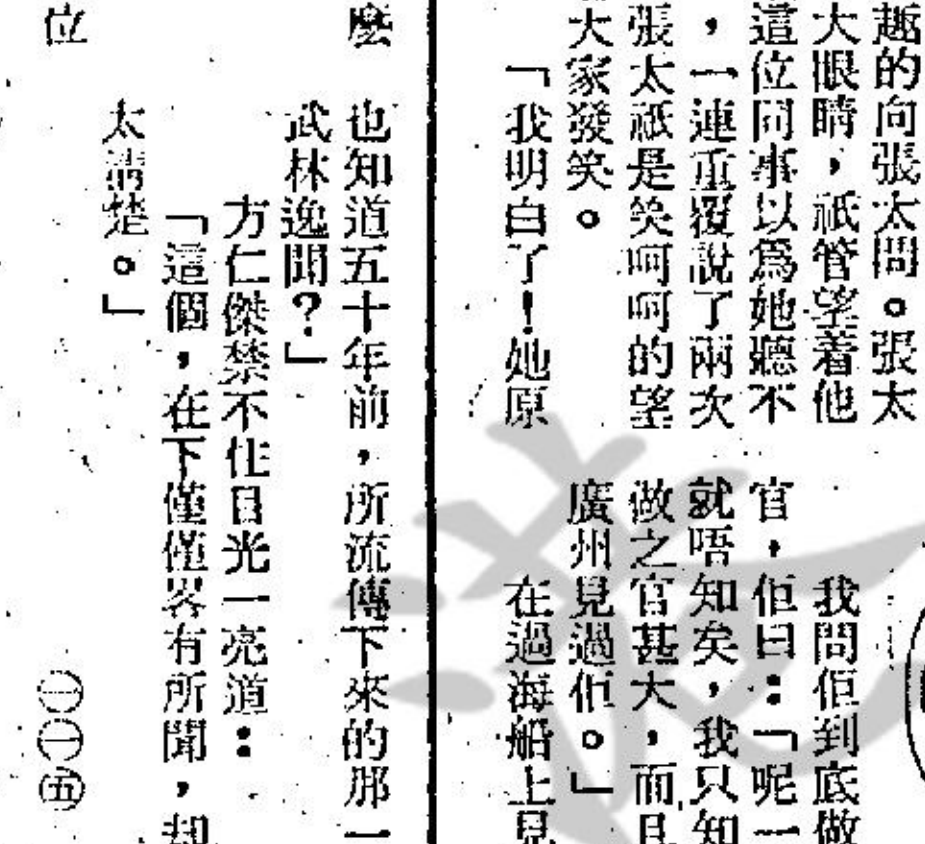 趣的向張太問。張太
大眼睛，祇管望着他
這位同事以爲她聽不
，一連重覆說了兩次
張太祇是笑呵呵的望
大家發笑。
「我明白了！她原
我問佢到底做
官，佢曰：「呢一
就唔知矣，我只知
做之官甚大，而且
廣州見過佢。」
在過海船上見
麼
位
也知道五十年前，所流傳下來的那一
武林逸聞？」
方仁傑禁不住目光一亮道：
「這個，在下僅僅畧有所聞，却
太清楚。」
㊀㊀㊄